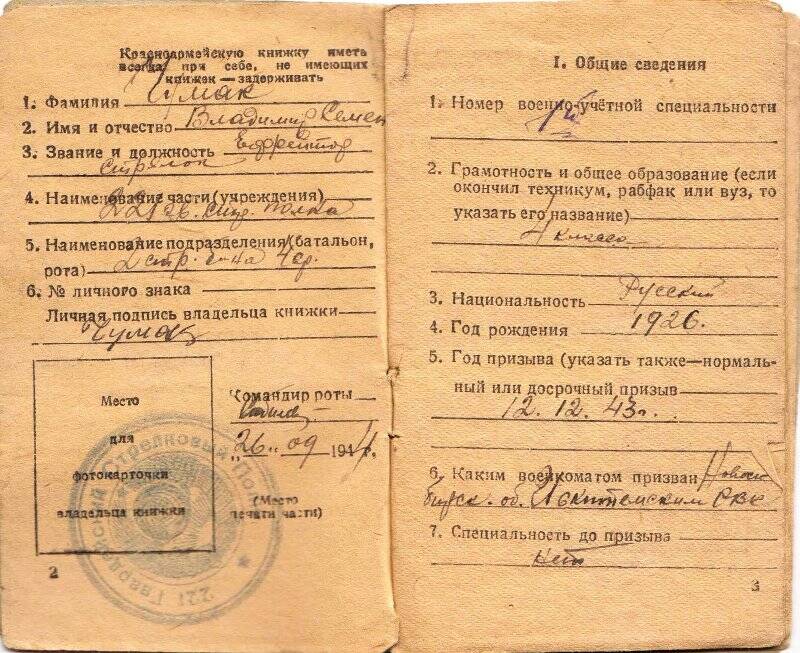 Красноармейскую книжку иметь
всегда при себе, не имеющих
книжек — задерживать
1. Фамилия Чумак
2. Имя и отчество Владимир Семен
3. Звание и должность Ефрейтор
стрелок
4. Наименование части (учреждения)
221 гв. стр. полка
5. Наименование подразделения (батальон,
рота) 2 стр. б-на 4 ср.
6. № личного знака
Личная подпись владельца книжки
Чумак
Место
для
фотокарточки
владельца книжки
Командир роты
„26" 09 1944.
(Место
печати части)
221 Гвардейский Стрелковый Полк
2
I. Общие сведения
1. Номер военно-учётной специальности
2. Грамотность и общее образование (если
окончил техникум, рабфак или вуз, то
указать его название)
4 класса
3. Национальность Русский
4. Год рождения 1926.
5. Год призыва (указать также—нормаль-
ный или досрочный призыв
12.12.43 г.
6. Каким военкоматом призван Новоси
бирск. об. Искитимским РВК
7. Специальность до призыва
нет
3